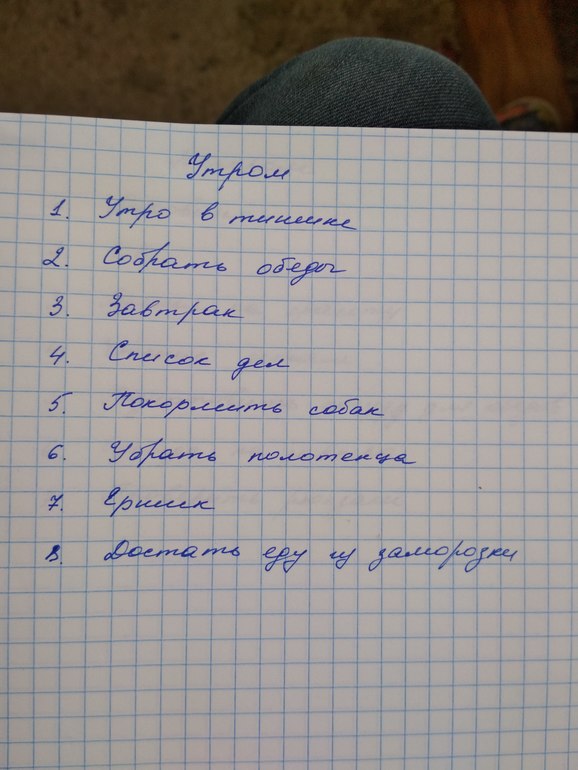 Утром
1. Утро в тишине
2. Собрать обеды
3. Завтрак
4. Список дел
5. Покормить собак
6. Убрать полотенца
7. Ершик
8. Достать еду из заморозки